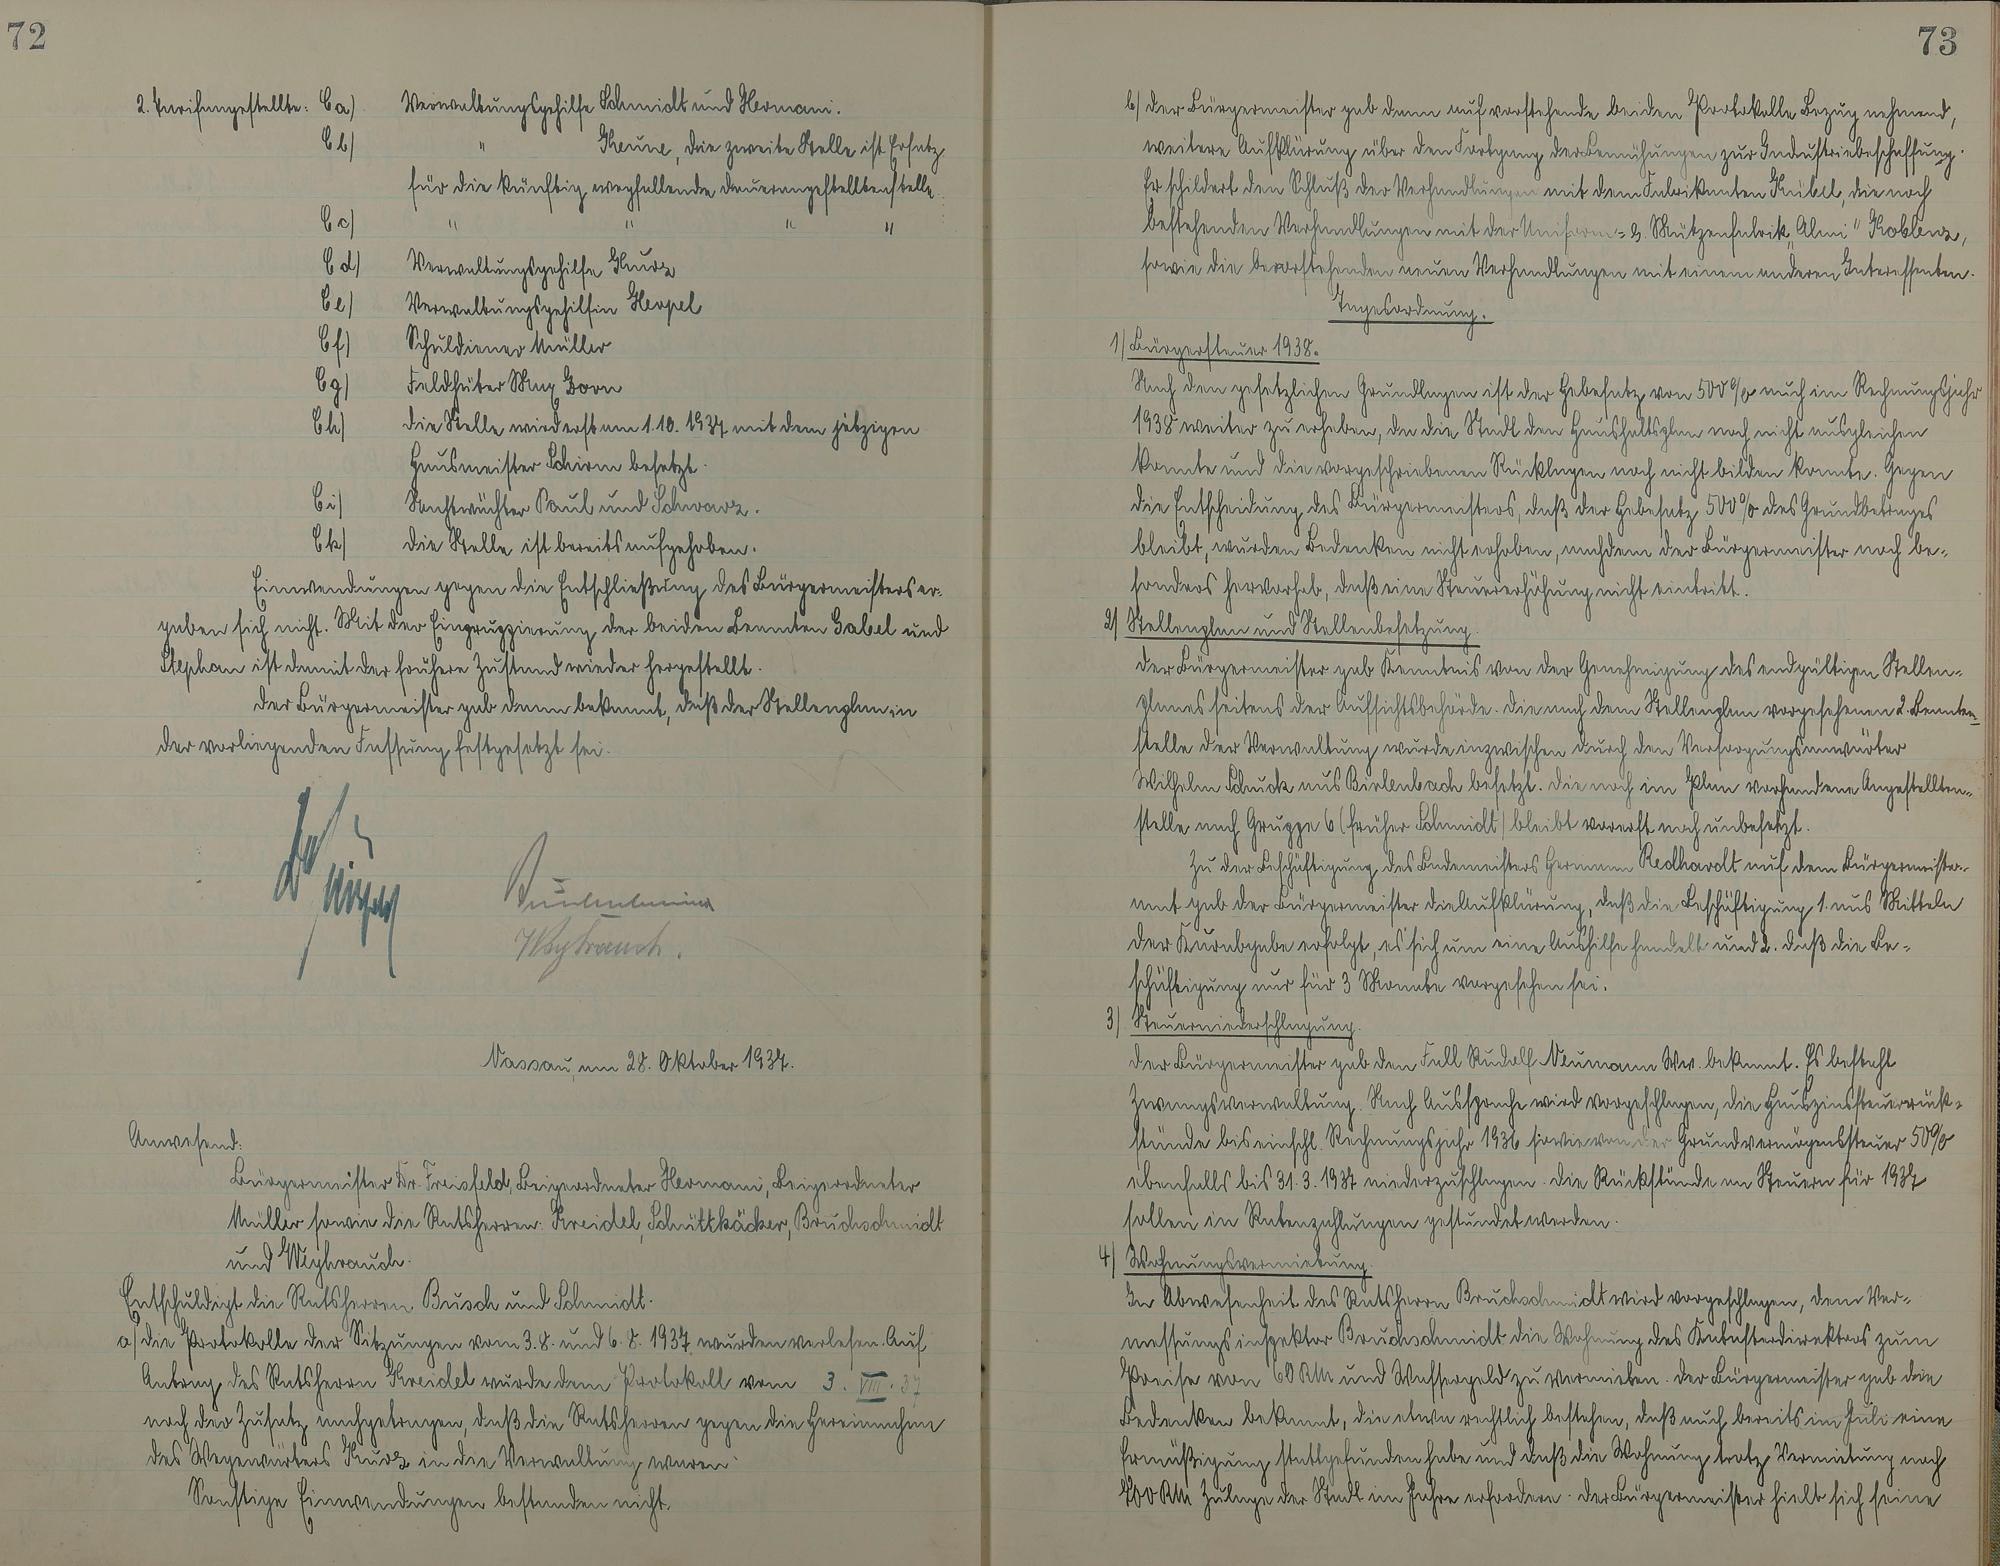 72
2. Tarifangestellte: C a) Verwaltungsgehilfe Schmidt und Hermani.
C b) " Keune, die zweite Stelle ist Ersatz
für die künftig wegfallende Dauerangestelltenstelle.
C c) " " " "
C d) Verwaltungsgehilfe Kurz
C e) Verwaltungsgehilfin Herpel
C f) Schuldiener Müller
C g) Feldhüter Max Dorn
C h) die Stelle wird erst am 1.10.1937 mit dem jetzigen
Hausmeister Schirm besetzt.
C i) Nachtwächter Paul und Schwarz.
C k) die Stelle ist bereits aufgehoben.
Einwendungen gegen die Entschließung des Bürgermeisters er-
gaben sich nicht. Mit der Eingruppierung der beiden Beamten Gabel und
Stephan ist damit der frühere Zustand wieder hergestellt.
Der Bürgermeister gab dann bekannt, daß der Stellenplan in
der vorliegenden Fassung festgesetzt sei.
Weyhrauch.
Nassau, am 28. Oktober 1937.
Anwesend:
Bürgermeister Dr. Freisfeld, Beigeordneter Hermani, Beigeordneter
Müller sowie die Ratsherren: Kreidel, Schüttkäcker, Bruchschmidt
und Weyhrauch.
Entschuldigt die Ratsherren Busch und Schmidt.
a) die Protokolle der Sitzungen vom 3.8. und 6.8.1937 wurden verlesen. Auf
Antrag des Ratsherrn Kreidel wurde dem Protokoll vom 3. VIII. 37
noch der Zusatz nachgetragen, daß die Ratsherren gegen die Hereinnahme
des Wegewärters Kurz in die Verwaltung waren.
Sonstige Einwendungen bestanden nicht.
73
b) der Bürgermeister gab dann auf vorstehende beiden Protokolle Bezug nehmend,
weitere Aufklärung über den Fortgang der Bemühungen zur Industriebeschaffung.
Er schildert den Schluß der Verhandlungen mit dem Fabrikanten Kübel, die noch
bestehenden Verhandlungen mit der Uniform- u. Mützenfabrik "Almi" Koblenz,
sowie die bevorstehenden neuen Verhandlungen mit einem anderen Interessenten.
Tagesordnung.
1) Bürgersteuer 1938.
Nach den gesetzlichen Grundlagen ist der Hebesatz von 500% auch im Rechnungsjahr
1938 weiter zu erheben, da die Stadt den Haushaltsplan noch nicht ausgleichen
konnte und die vorgeschriebenen Rücklagen noch nicht bilden konnte. Gegen
die Entscheidung des Bürgermeisters, daß der Hebesatz 500% des Grundbetrages
bleibt, wurden Bedenken nicht erhoben, nachdem der Bürgermeister noch be-
sonders hervorhob, daß eine Steuererhöhung nicht eintritt.
2) Stellenplan und Stellenbesetzung.
Der Bürgermeister gab Kenntnis von der Genehmigung des endgültigen Stellen-
planes seitens der Aufsichtsbehörde. Die nach dem Stellenplan vorgesehenen 2. Beamten-
stelle der Verwaltung wurde inzwischen durch den Versorgungsanwärter
Wilhelm Schuck aus Birlenbach besetzt. Die noch im Plan vorhandene Angestellten-
stelle nach Gruppe 6 (früher Schmidt) bleibt vorerst noch unbesetzt.
Zu der Beschäftigung des Bademeisters Hermann Redhardt auf dem Bürgermeister-
amt gab der Bürgermeister die Aufklärung, daß die Beschäftigung 1. aus Mitteln
der Kurabgabe erfolgt, es sich um eine Aushilfe handelt und 2. daß die Be-
schäftigung nur für 3 Monate vorgesehen sei.
3) Steuerniederschlagung.
Der Bürgermeister gab den Fall Rudolf Neumann Ww. bekannt. Es besteht
Zwangsverwaltung. Nach Aussprache wird vorgeschlagen, die Hauszinssteuerrück-
stände bis einschl. Rechnungsjahr 1936 sowie von der Grundvermögenssteuer 50%
ebenfalls bis 31.3.1937 niederzuschlagen. Die Rückstände an Steuern für 1937
sollen in Ratenzahlungen gestundet werden.
4) Wohnungsvermietung.
In Abwesenheit des Ratsherrn Bruchschmidt wird vorgeschlagen, dem Ver-
messungsinspektor Bruchschmidt die Wohnung des Katasterdirektors zum
Preise von 60 RM und Wassergeld zu vermieten. Der Bürgermeister gab die
Bedenken bekannt, die etwa rechtlich bestehen, daß auch bereits im Juli eine
Ermäßigung stattgefunden habe und daß die Wohnung trotz Vermietung noch
200 RM Zulage der Stadt im Jahre erfordere. Der Bürgermeister hielt sich seine